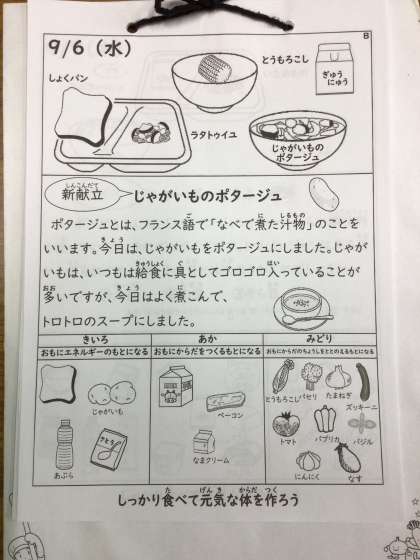 B
9/6 (水)
しょくパン
とうもろこし
ぎゅう
にゅう
ラタトゥイユ
じゃがいもの
ポタージュ
しんこんだて
新献立
じゃがいものポタージュ
ポタージュとは、フランス語で「なべで煮た汁物」のことを
いいます。今日は、じゃがいもをポタージュにしました。じゃが
いもは、いつもは給食に具としてゴロゴロ入っていることが
多いですが、今日はよく煮こんで、
トロトロのスープにしました。
きいろ
あか
みどり
おもにエネルギーのもとになる
おもにからだをつくるもとになる
おもにからだのちょうしをととのえるもとになる
じゃがいも
あぶら
さとう
ベーコン
なまクリーム
とうもろこし
パセリ
たまねぎ
ズッキーニ
トマト
パプリカ
バジル
にんにく
なす
しっかり食べて元気な体を作ろう